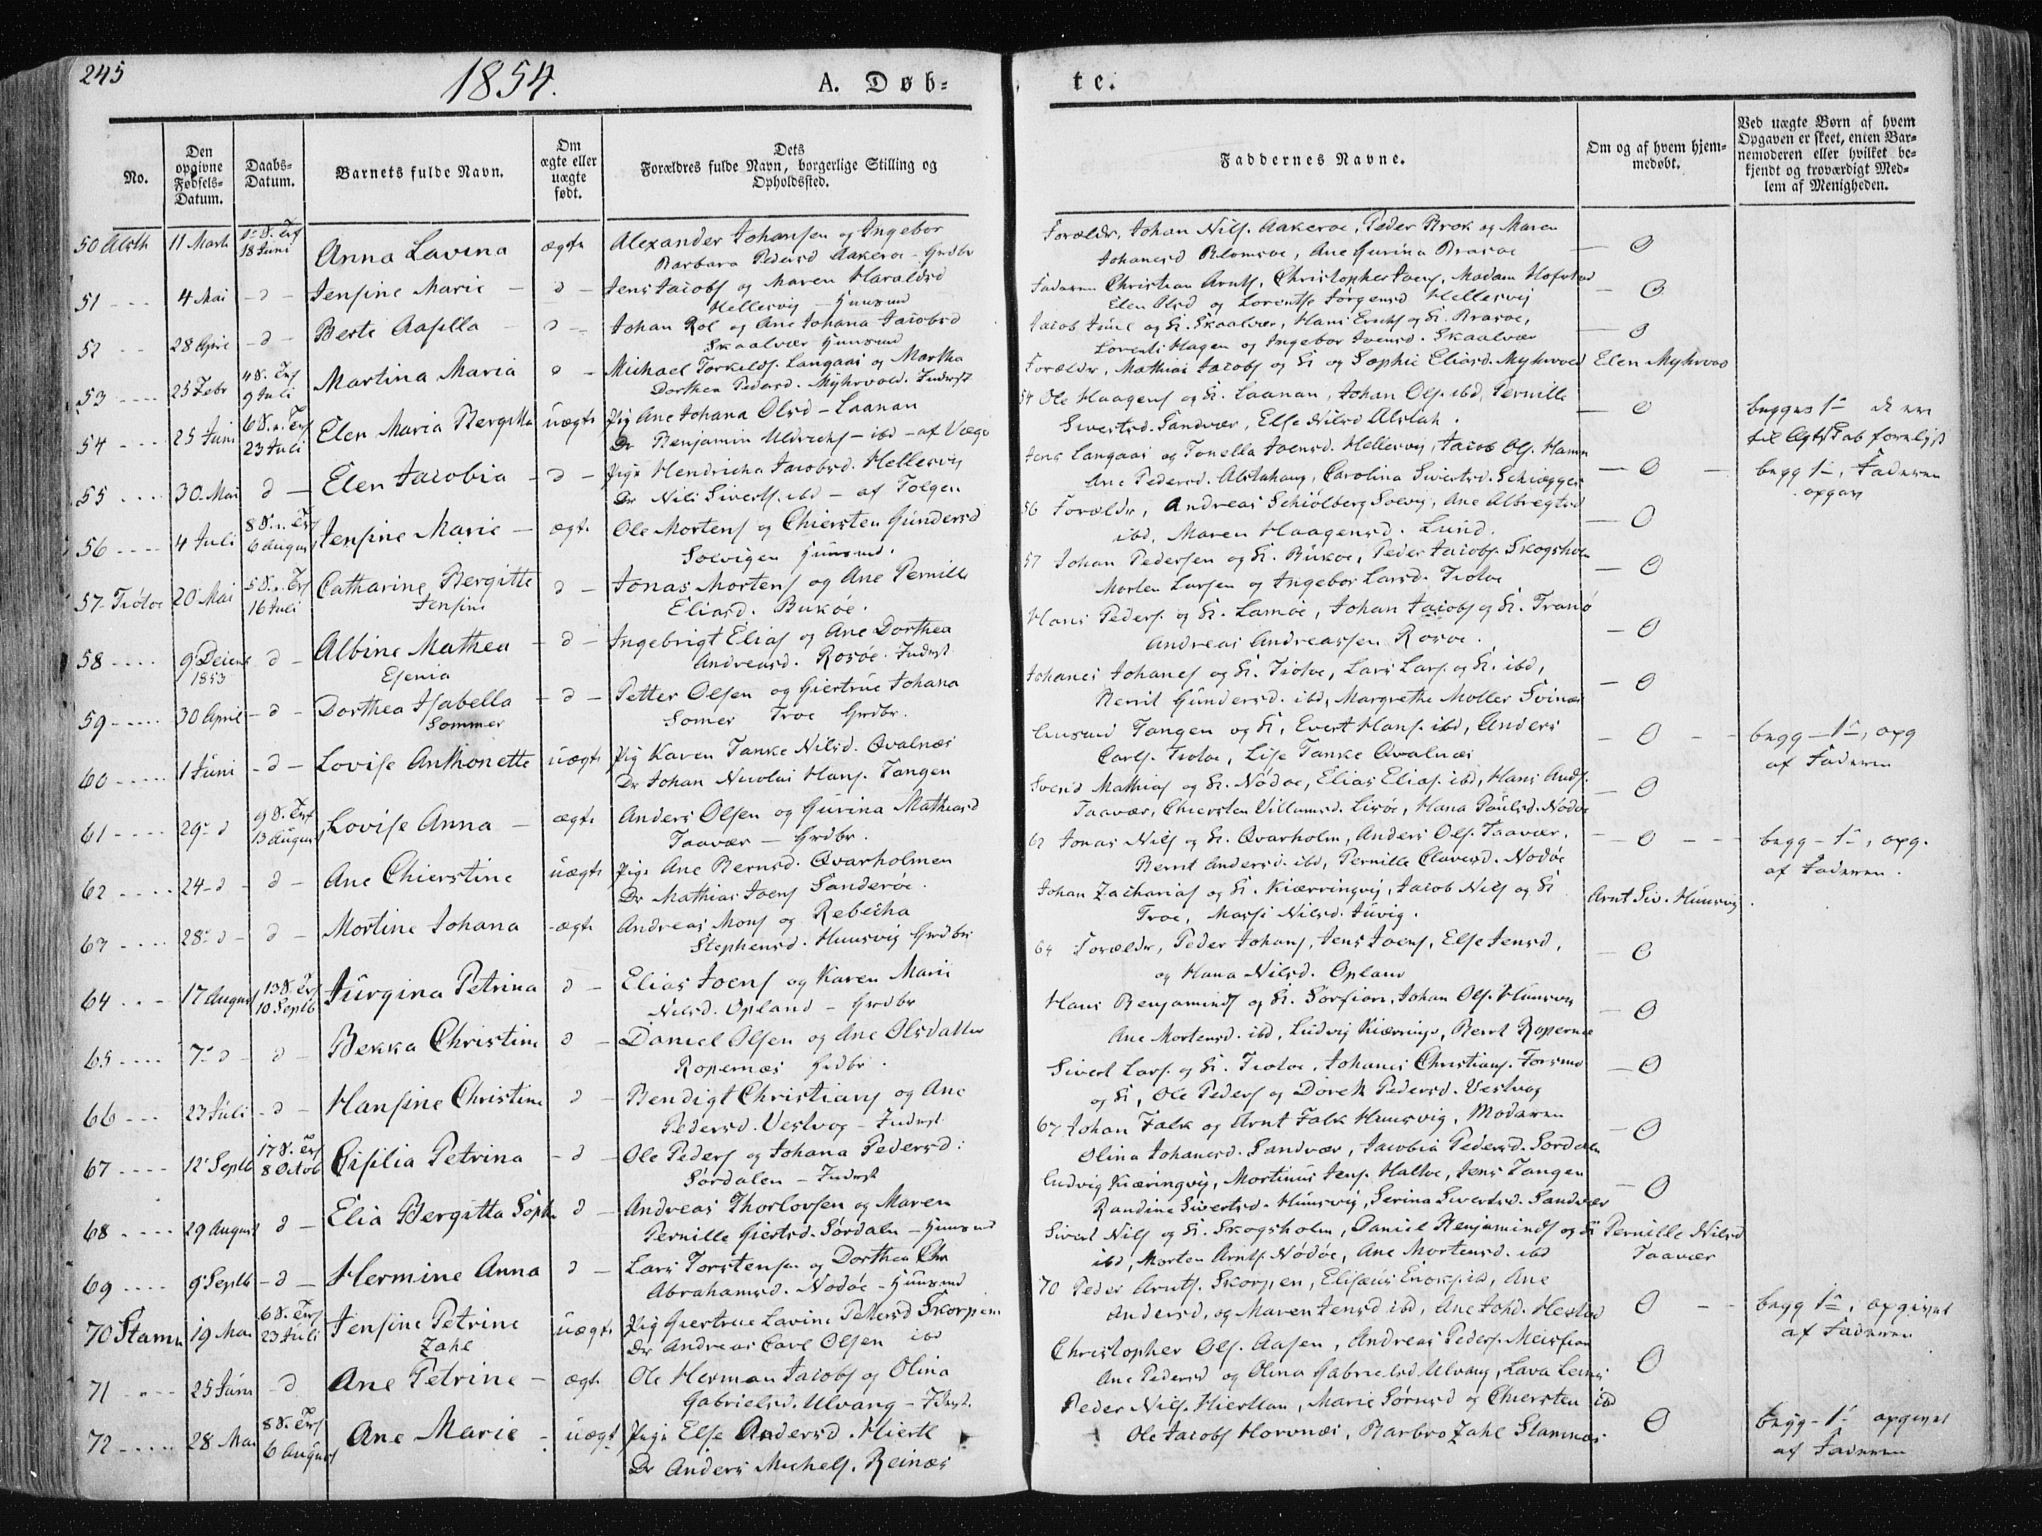 245
1854.
A. Døb-
te.
No.
Den opgivne Fødsels-Datum.
Daabs-Datum.
Barnets fulde Navn.
Om ægte eller uægte født.
Dets Forældres fulde Navn, borgerlige Stilling og Opholdssted.
Faddernes Navne.
Om og af hvem hjem-medøbt.
Ved uægte Børn af hvem Opgaven er skeet, enten Bar-nemoderen eller hvilket be-kjendt og troværdigt Med-lem af Menigheden.
50 Alsth 11 Marts 18 Juni Anna Lavina ægte Alexander Johansen og Ingebor
Barbara Pedersd Aakeroe - Grdbr
Forældr, Johan Nils. Aakeroe, Peder Brok og Maren
Johanesd Blomsoe, Ane Gurina Brasoe
51 4 Mai - d - Jensine Marie - d - Jens Jacobs og Maren Haraldsd
Hellesvig - Huusmd
Faderen Christian Arnts, Christopher Joens, Madam Hofstad
Elen Olsd og Lorentse Jørgensd Hellesvig
52 28 April - d - Berte Aasella - d - Johan Rol og Ane Johana Jacobsd
Skaalvær Huusmd
Jacob Juul og K. Skaalvær, Hans Erichs og K. Brasoe,
Lorents Hagen og Ingebor Joensd. Skaalvær
53 25 Febr 9 Juli Martina Maria d - Michael Torkelds. Langaas og Martha
Dorthea Pedersd. Myhrvold. Inderst
Forældr, Mathias Jacobs og K og Sophie Eliasd. Myhrvold Elen Myhrvold
54 25 Juni 23 Juli Elen Maria Bergitta uægte Pig Ane Johana Olsd - Laanan
Dr Benjamin Uldrichs - ibd - af Vægø
54 Ole Haagens og K. Laanan, Johan Ols. ibd, Pernille
Sivertsd. Sandvær, Else Nilsd Alstah.
begges 1-
55 30 Mai d - Elen Jacobia - d - Pige Hendricha Jacobsd. Hellesvig
Dr Nils Siverts. ibd - af Tolgen
Jens Langaas og Tonella Joensd. Hellesvig, Jacob Ols. Hamn
Ane Pedersd. Alstahaug, Carolina Sivertsd. Schiægges
begg 1-, Faderen
opgav
56 4 Juli 6 August Jensine Marie - ægte Ole Mortens og Chiersten Gundersd
Solvigen Huusmd.
56 Forældr, Andreas Schiølberg Solvig, Ane Albregtsd
ibd, Maren Haagensd. Lund.
57 Tiøtøe 20 Mai 16 Juli Catharine Bergitte
Jensine
d - Jonas Mortens og Ane Pernille
Eliasd. Bukøe.
57 Johan Pedersen og K. Bukøe, Peder Jacobs. Skogsholm
Morten Larsen og Ingebor Larsd. Tiøtøe
58 9 Decemb 1853 - d - Albine Mathea
Esenia
- d - Ingebrigt Elias og Ane Dorthea
Andreasd. Rosøe. Inderst
Hans Peders og K. Lamøe, Johan Jacobs og K. Tranø
Andreas Andreassen Rosøe.
59 30 April - d - Dorthea Isabella
Sommer
- d - Petter Olsen og Giertrue Johana
Somer Troe Grdbr.
Johanes Johanes og K. Tiøtøe, Lars Lars. og K. ibd,
Berit Gundersd. ibd, Margrethe Moller Svinæs
60 1 Juni - d - Lovise Anthonette uægte Pig Karen Tanke Nilsd. Qvalnæs
Dr Johan Nicolai Hans. Tangen
Tangen og K, Evert Hans. ibd, Anders
Carls. Tiøtøe, Lise Tanke Qvalnæs
begg - 1-, opg
af Faderen
61 29 - d 13 August Lovise Anna - ægte Anders Olsen og Gurina Mathiasd
Taavær - Grdbr.
Svend Mathias og K. Nødøe, Elias Elias. ibd, Hans Ands.
Taavær, Chiersten Villumsd. Lisøe, Hana Paulsd. Nødøe
62 24 - d - d - Ane Chierstine uægte Pige Ane Berntsd. Qvarholmen
Dr Mathias Joens Sanderøe.
62 Jonas Nils og K. Qvarholm, Anders Ols. Taavær,
Bernt Andersd. ibd, Pernille Clavesd. Nodøe
begg - 1-, opg.
af Faderen.
63 28 - d - d - Mortine Johana - ægte Andreas Mons og Rebecha
Stephensd. Huusvig Grdbr
Johan Zacharias og K. Kiærringvig, Jacob Nils og K
Troe, Massi Nilsd. Juvig. Arnt Siv. Huusvig
64 17 August 10 Septb Jürgina Petrina d - Elias Joens og Karen Marie
Nilsd. Opland - Grdbr
64 Forældr, Peder Johans, Jens Joens, Else Jensd,
og Hana Nilsd. Opland
65 7 - d - d - Bekka Christine d - Daniel Olsen og Ane Olsdatter
Ropernæs Grdbr.
Hans Benjamins og K. Sorfion, Johan Ols. Huusvig
Ane Mortensd. ibd, Ludvig Kiærringv, Bernt Ropernæs
66 23 Juli - d - Hansine Christine d - Bendigt Christians og Ane
Pedersd. Vestvog - Inderst
Sivert Lars og K. Tiøtøe, Johanes Christians. Forsmd
og K, Ole Peders og Doreth Pedersd. Vestvog
67 12 Septb 8 Octob Cisilia Petrina - d - Ole Peders og Johana Pedersd:
Sørdalen - Inderst
67 Johan Falk og Arnt Falk Huusvig, Moderen
Olina Johanesd. Sandvær, Jacobia Pedersd. Sordalen
68 29 August d - Elia Bergitta Soph d - Andreas Thorlovsen og Maren
Pernille Giertsd. Sørdalen - Huusmd
Ludvig Kiæringvig, Mortinus Jens. Haltøe, Jens Tangen
Randine Sivertsd. Huusvig, Serina Sivertsd. Sandvær
69 9 Septb - d - Hermine Anna d - Lars Torstensen og Dorthea Chr
Abrahamsd. Nodøe - Huusmd
Sivert Nils og K. Skogsholm, Daniel Benjamins og K Pernille Nilsd
ibd, Morten Arnts. Nødøe, Ane Mortensd. ibd Taavær
70 Stamn 19 Mai 23 Juli Jensine Petrine
Zahl
uægte Pig Giertrue Lavine Pettersd Skorpen
Dr Andreas Carl Olsen ibd
70 Peder Arnts. Skorpen, Elisæus Enoks ibd, Ane
Andersd, og Maren Jensd ibd, Ane Johd. Hestad
begg 1-, opgivet
af Faderen
71 25 Juni - d Ane Petrine - ægte Ole Herman Jacobs og Olina
Gabrielsd. Ulvang - Indrst.
Christopher Ols. Aasen, Andreas Peders. Meisfion
Ane Pedersd og Olina Gabrielsd Ulvang, Lava
72 28 Mai 6 August Ane Marie - uægt Pige Else Andersd. Hiertl
Dr Anders Michels. Reinæs
Peder Nils. Hiertlan, Marie Sørensd og Chiersten ibd
Ole Jacobs Horvnæs, Barbro Zahl Stamnæs
begg - 1- opgivet
af Faderen